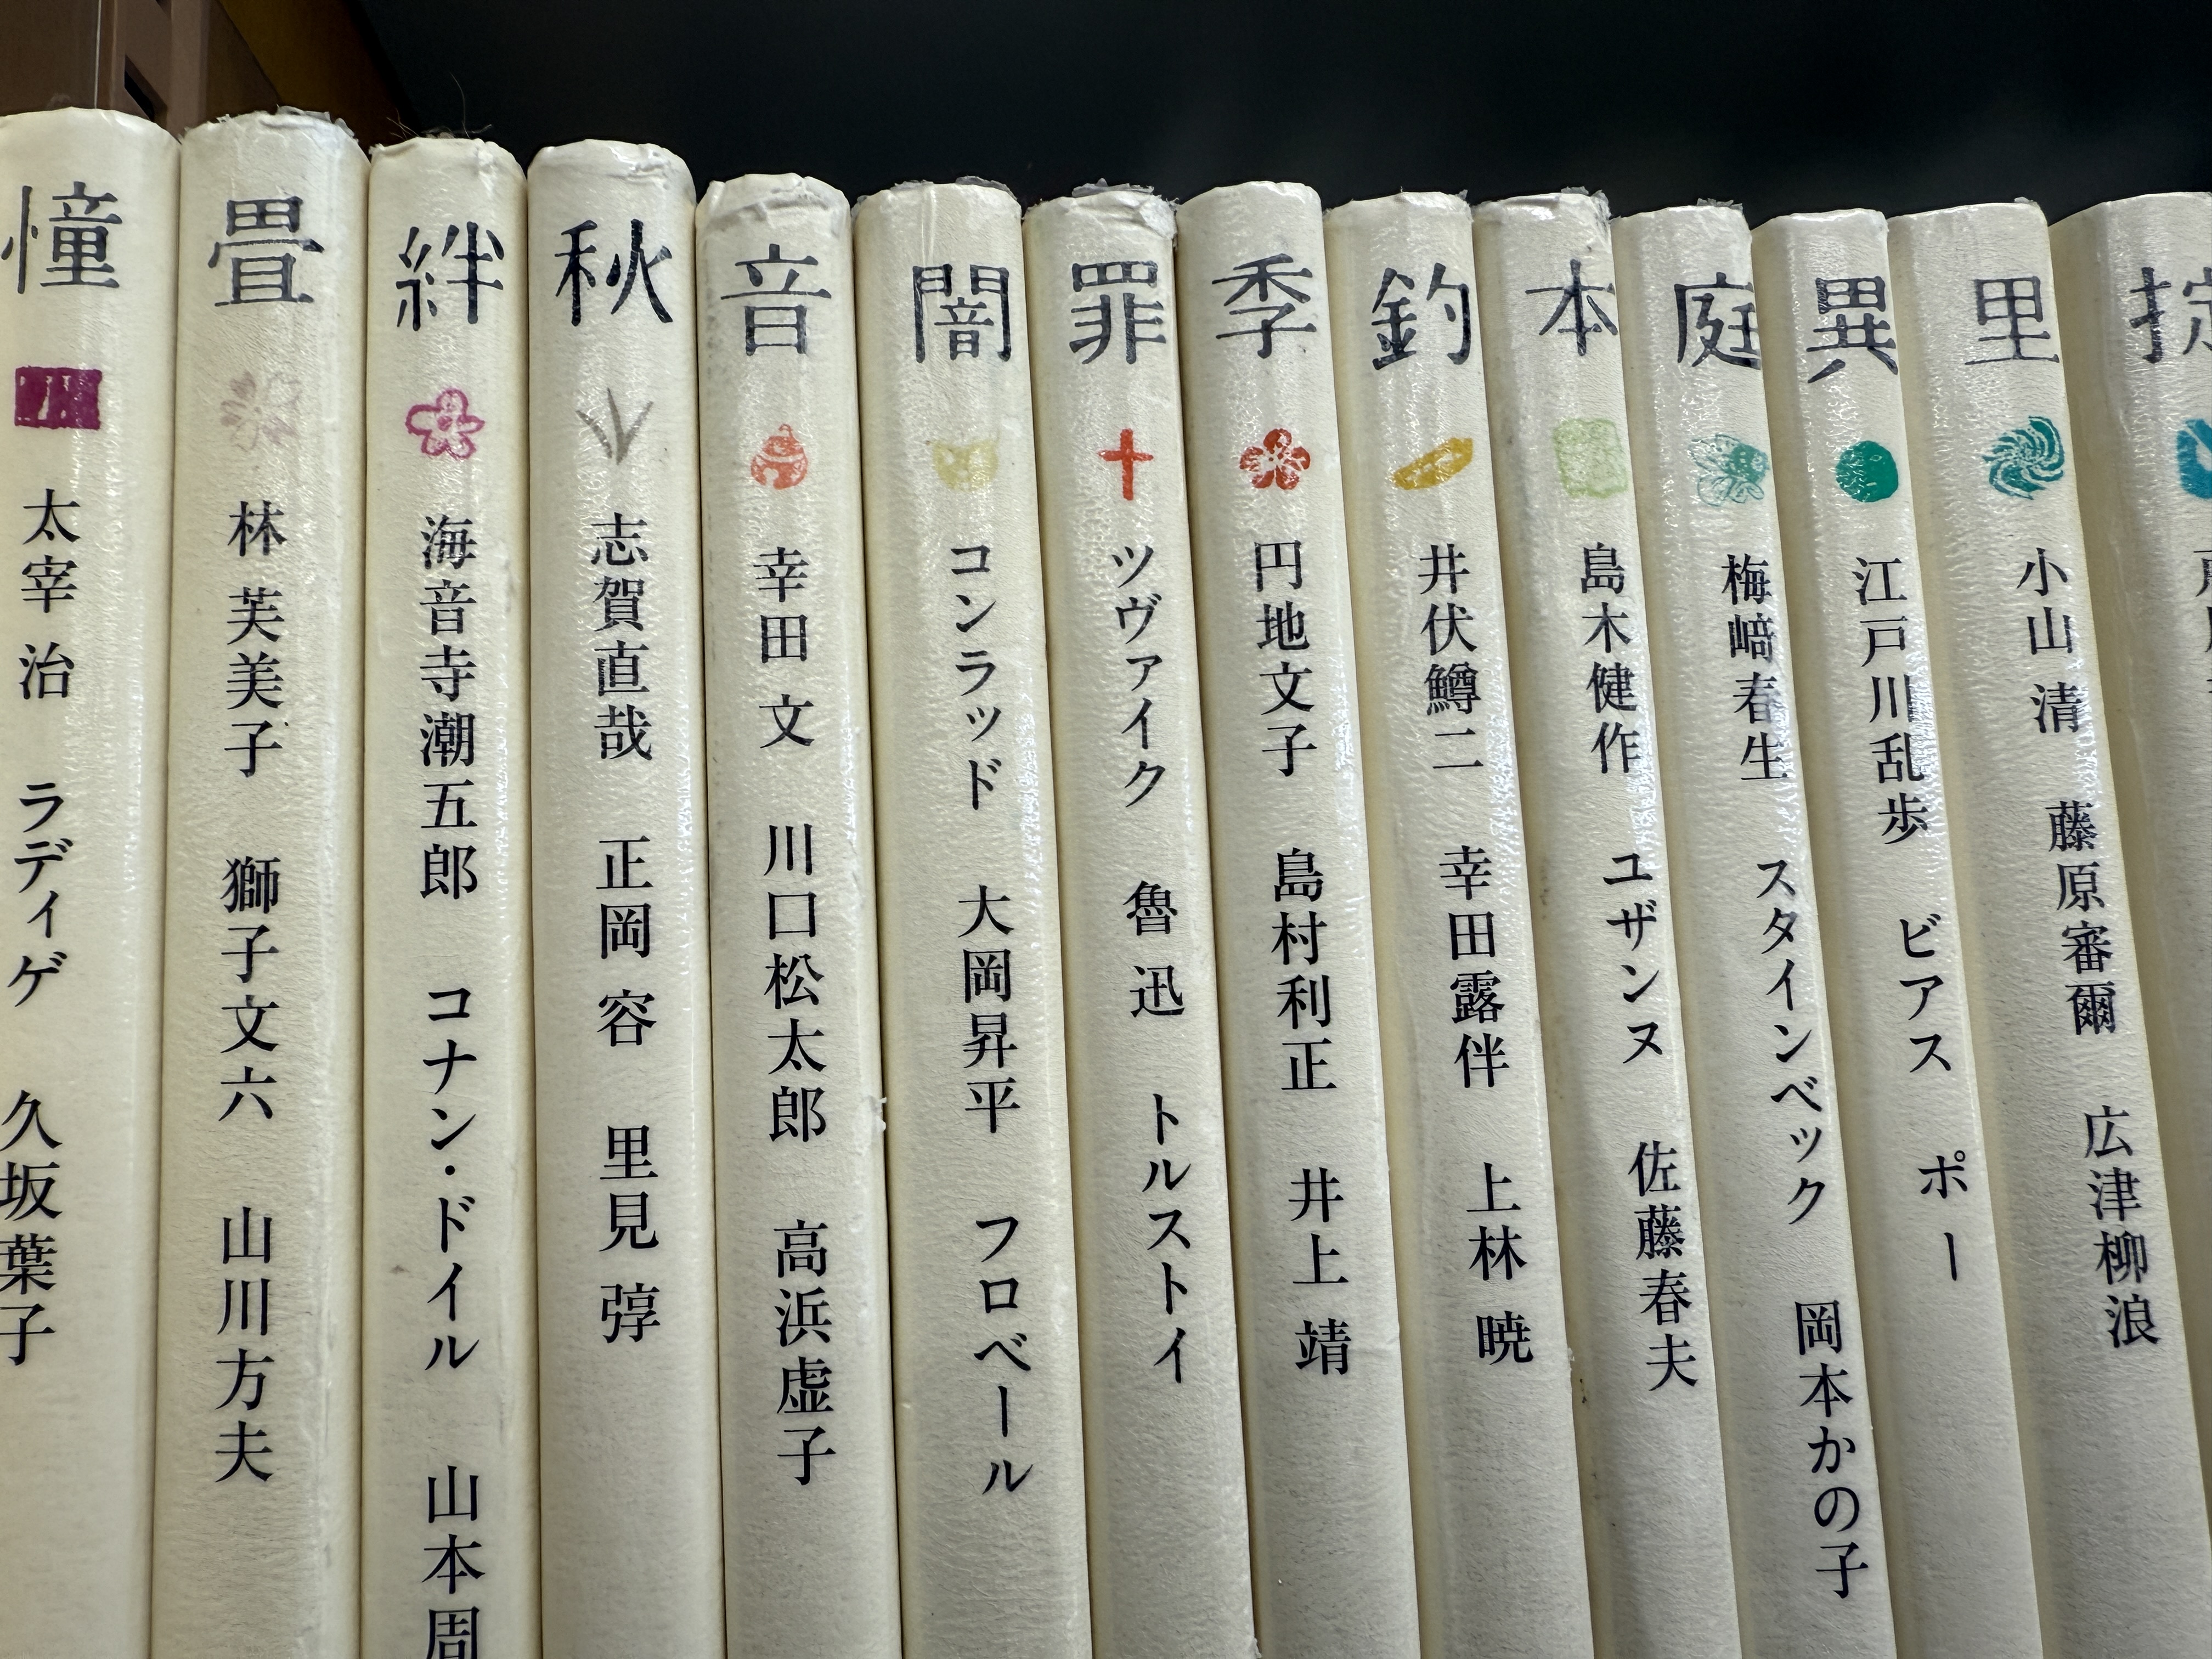 憧 太宰 治 ラディゲ 久坂葉子
畳 林 芙美子 獅子文六 山川方夫
絆 海音寺潮五郎 コナン・ドイル 山本周
秋 志賀直哉 正岡 容 里見 弴
音 幸田 文 川口松太郎 高浜虚子
闇 コンラッド 大岡昇平 フロベール
罪 ツヴァイク 魯 迅 トルストイ
季 円地文子 島村利正 井上 靖
釣 井伏鱒二 幸田露伴 上林 暁
本 島木健作 ユザンヌ 佐藤春夫
庭 梅﨑春生 スタインベック 岡本かの子
異 江戸川乱歩 ビアス ポー
里 小山 清 藤原審爾 広津柳浪
掟